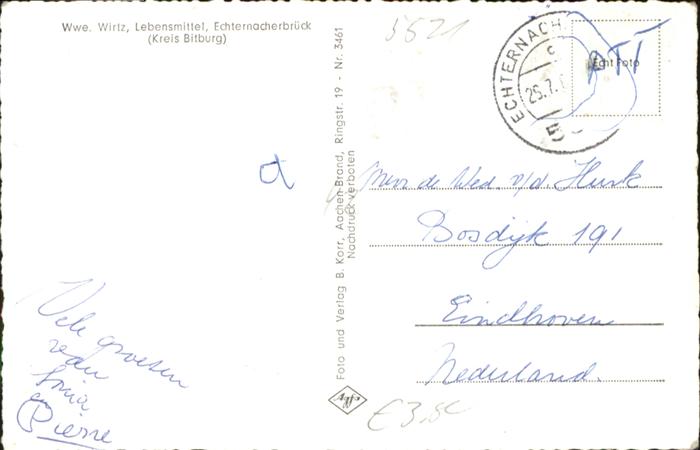 Wwe. Wirtz, Lebensmittel, Echternacherbrück
(Kreis Bitburg)
3621
ECHTERNACH
c
25.7.
Echt Foto
PTT
Foto und Verlag B. Korr, Aachen-Brand, Ringstr. 19 - Nr. 3461
Nachdruck verboten
Agfa
Mevr de Wed. v/d. Hurk
Bosdijk 191
Eindhoven
Nederland.
Vele groeten
van
Sonia
en
Pierre